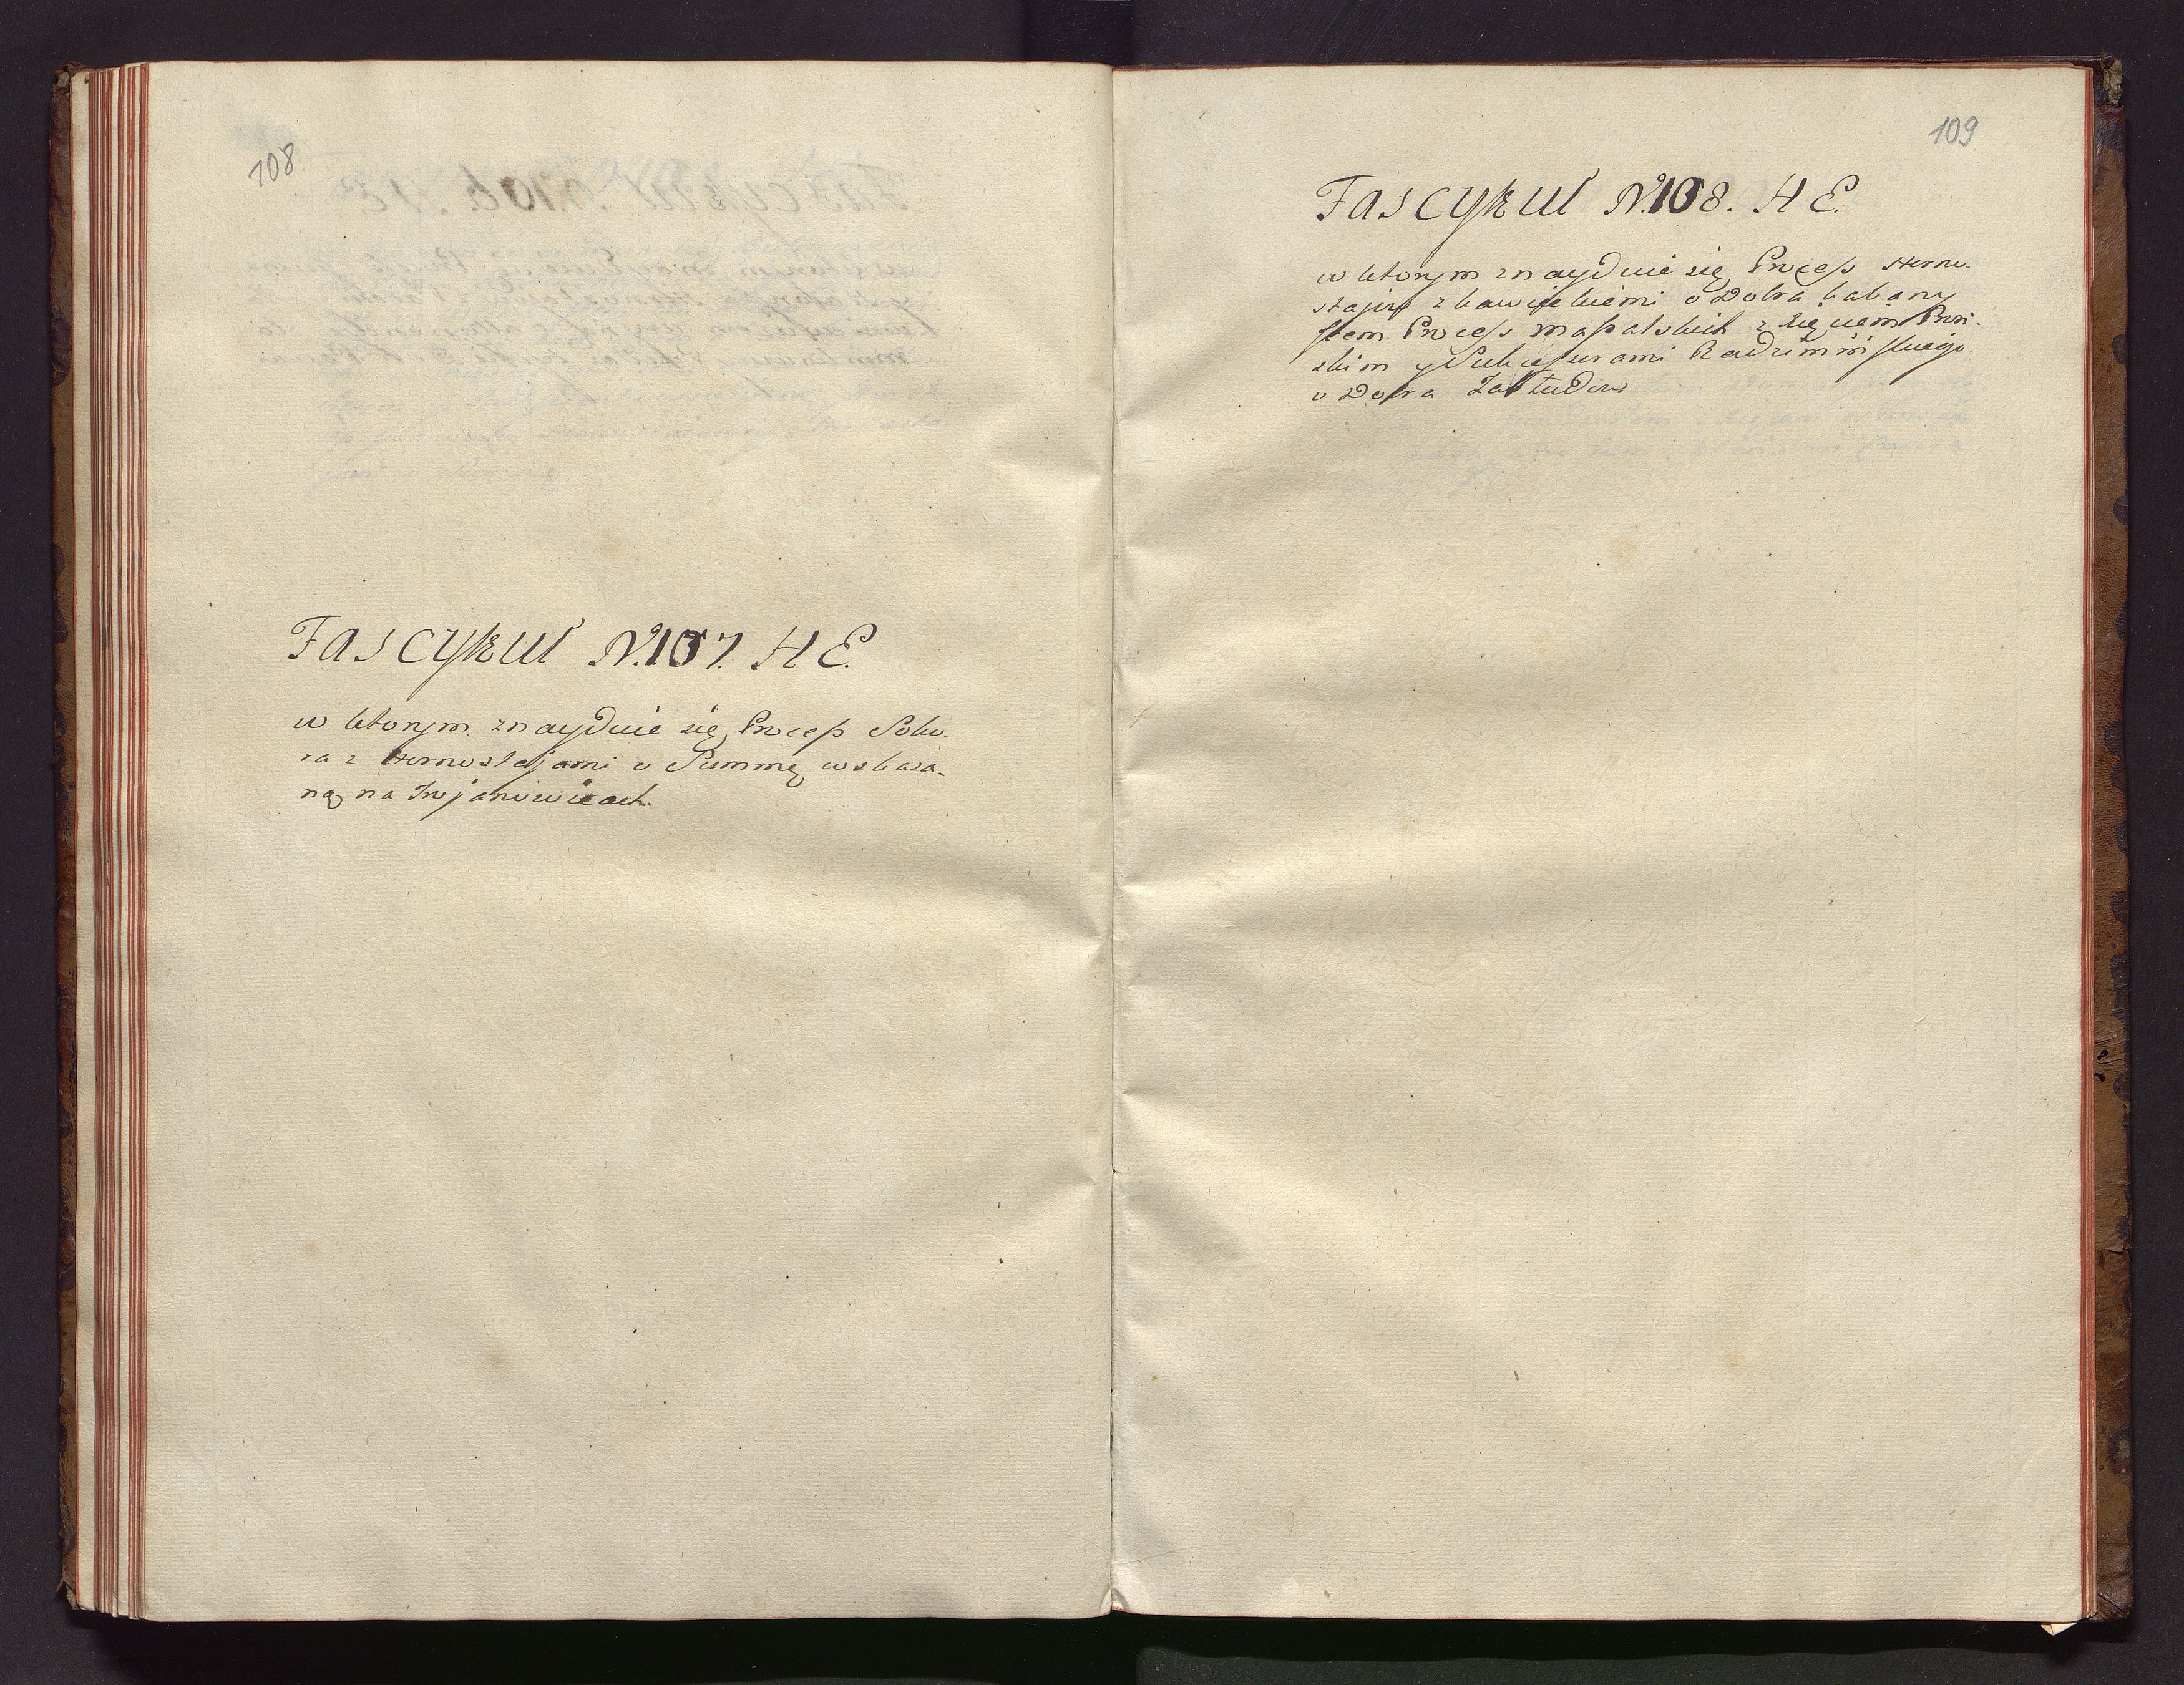 108
Fascykuł N. 107. H E.
w ktorym znayduie się Process Soko-
ra z Hornostajami o Summę wskaza-
ną na Trojanowicach.
109
Fascykuł N. 108. H E.
w ktorym znayduie się Process Horno-
stajow z o Dobra
Item Process Massalskich z
skim y Sukcessorami Radziminskiego
o Dobra Zabłudow